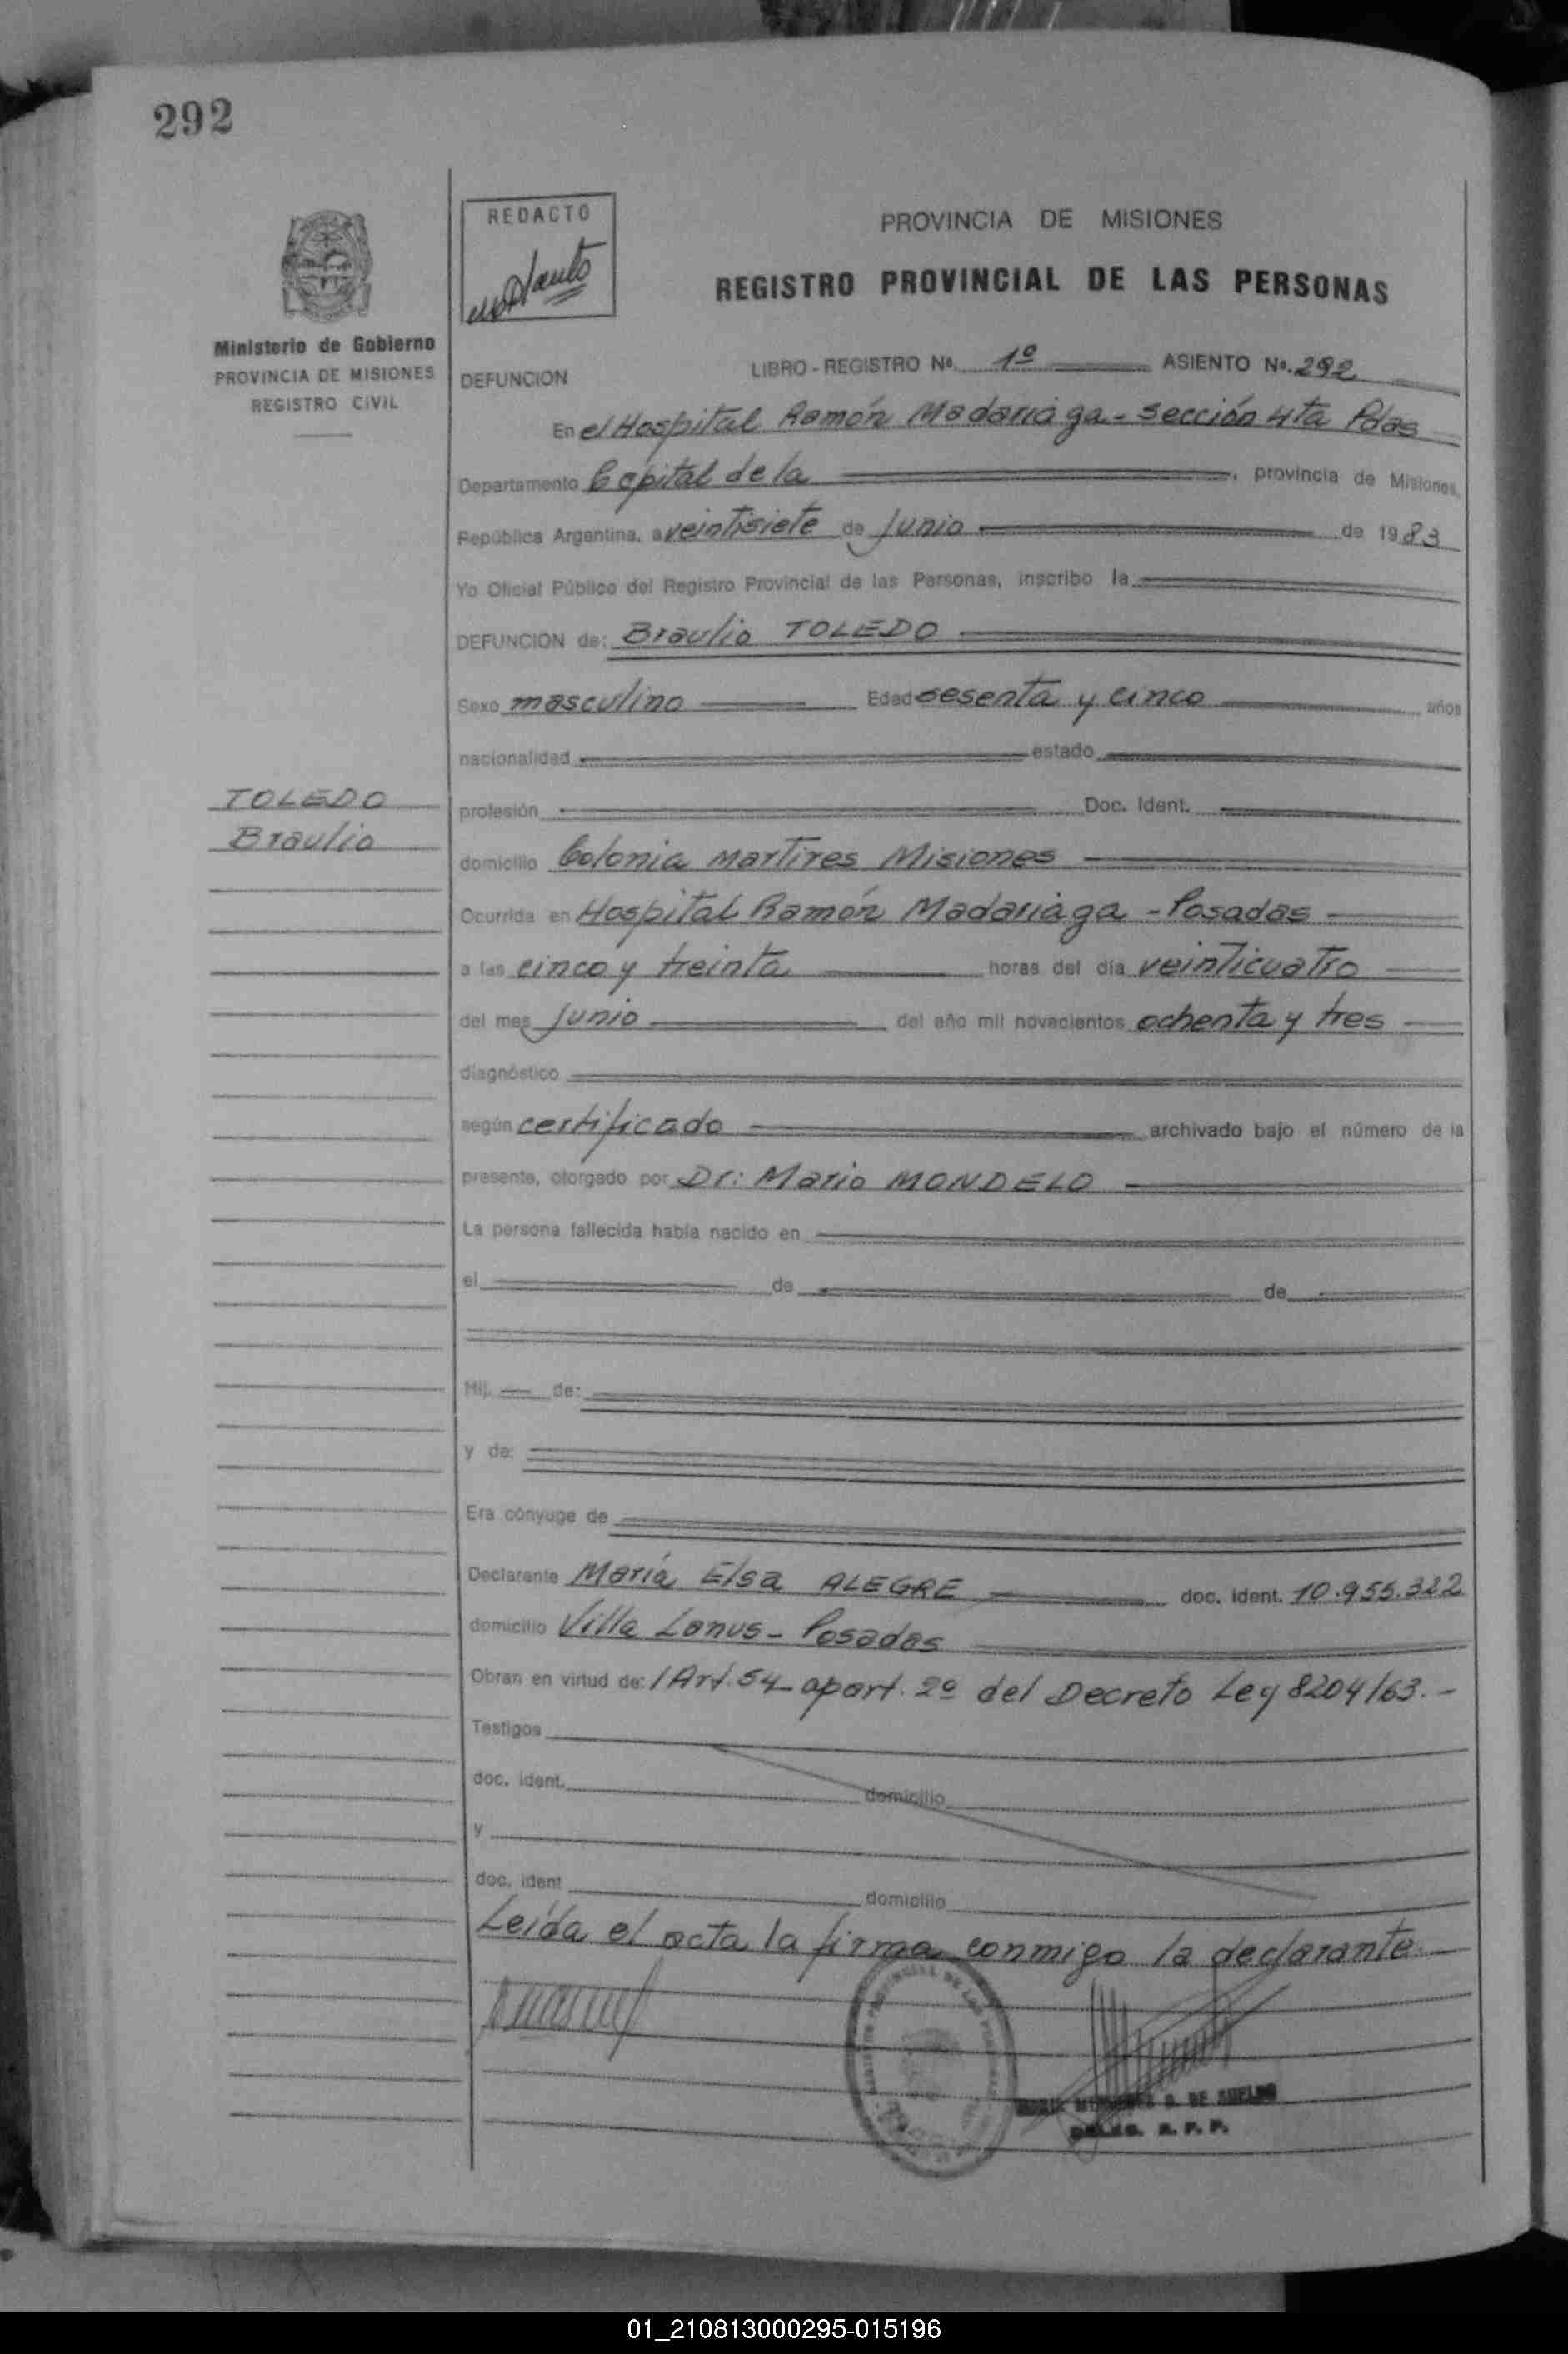 292
REDACTO
PROVINCIA DE MISIONES
REGISTRO PROVINCIAL DE LAS PERSONAS
Ministerio de Gobierno
PROVINCIA DE MISIONES
REGISTRO CIVIL
DEFUNCION
LIBRO - REGISTRO Nº. 1º ASIENTO Nº. 292
En el Hospital Ramón Madariaga - Sección 4ta Pdas
Departamento Capital de la , provincia de Misiones,
República Argentina, a veintisiete de Junio de 1983
Yo Oficial Público del Registro Provincial de las Personas, inscribo la
DEFUNCION de: Braulio TOLEDO
Sexo masculino Edad sesenta y cinco años
nacionalidad estado
TOLEDO
Braulio
profesión Doc. Ident.
domicilio Colonia Martires Misiones
Ocurrida en Hospital Ramón Madariaga - Posadas -
a las cinco y treinta horas del día veinticuatro
del mes Junio del año mil novecientos ochenta y tres
diagnóstico
según certificado archivado bajo el número de la
presente, otorgado por Dr: Mario MONDELO
La persona fallecida había nacido en
el de de
Hij. de:
y de:
Era cónyuge de
Declarante María Elsa ALEGRE doc. ident. 10.955.322
domicilio Villa Lanus - Posadas
Obran en virtud de: / Art. 54 apart. 2º del Decreto Ley 8204/63.-
Testigos
doc. ident. domicilio
y
doc. ident domicilio
Leída el acta la firma conmigo la declarante
DE
R. P. P.
01_210813000295-015196